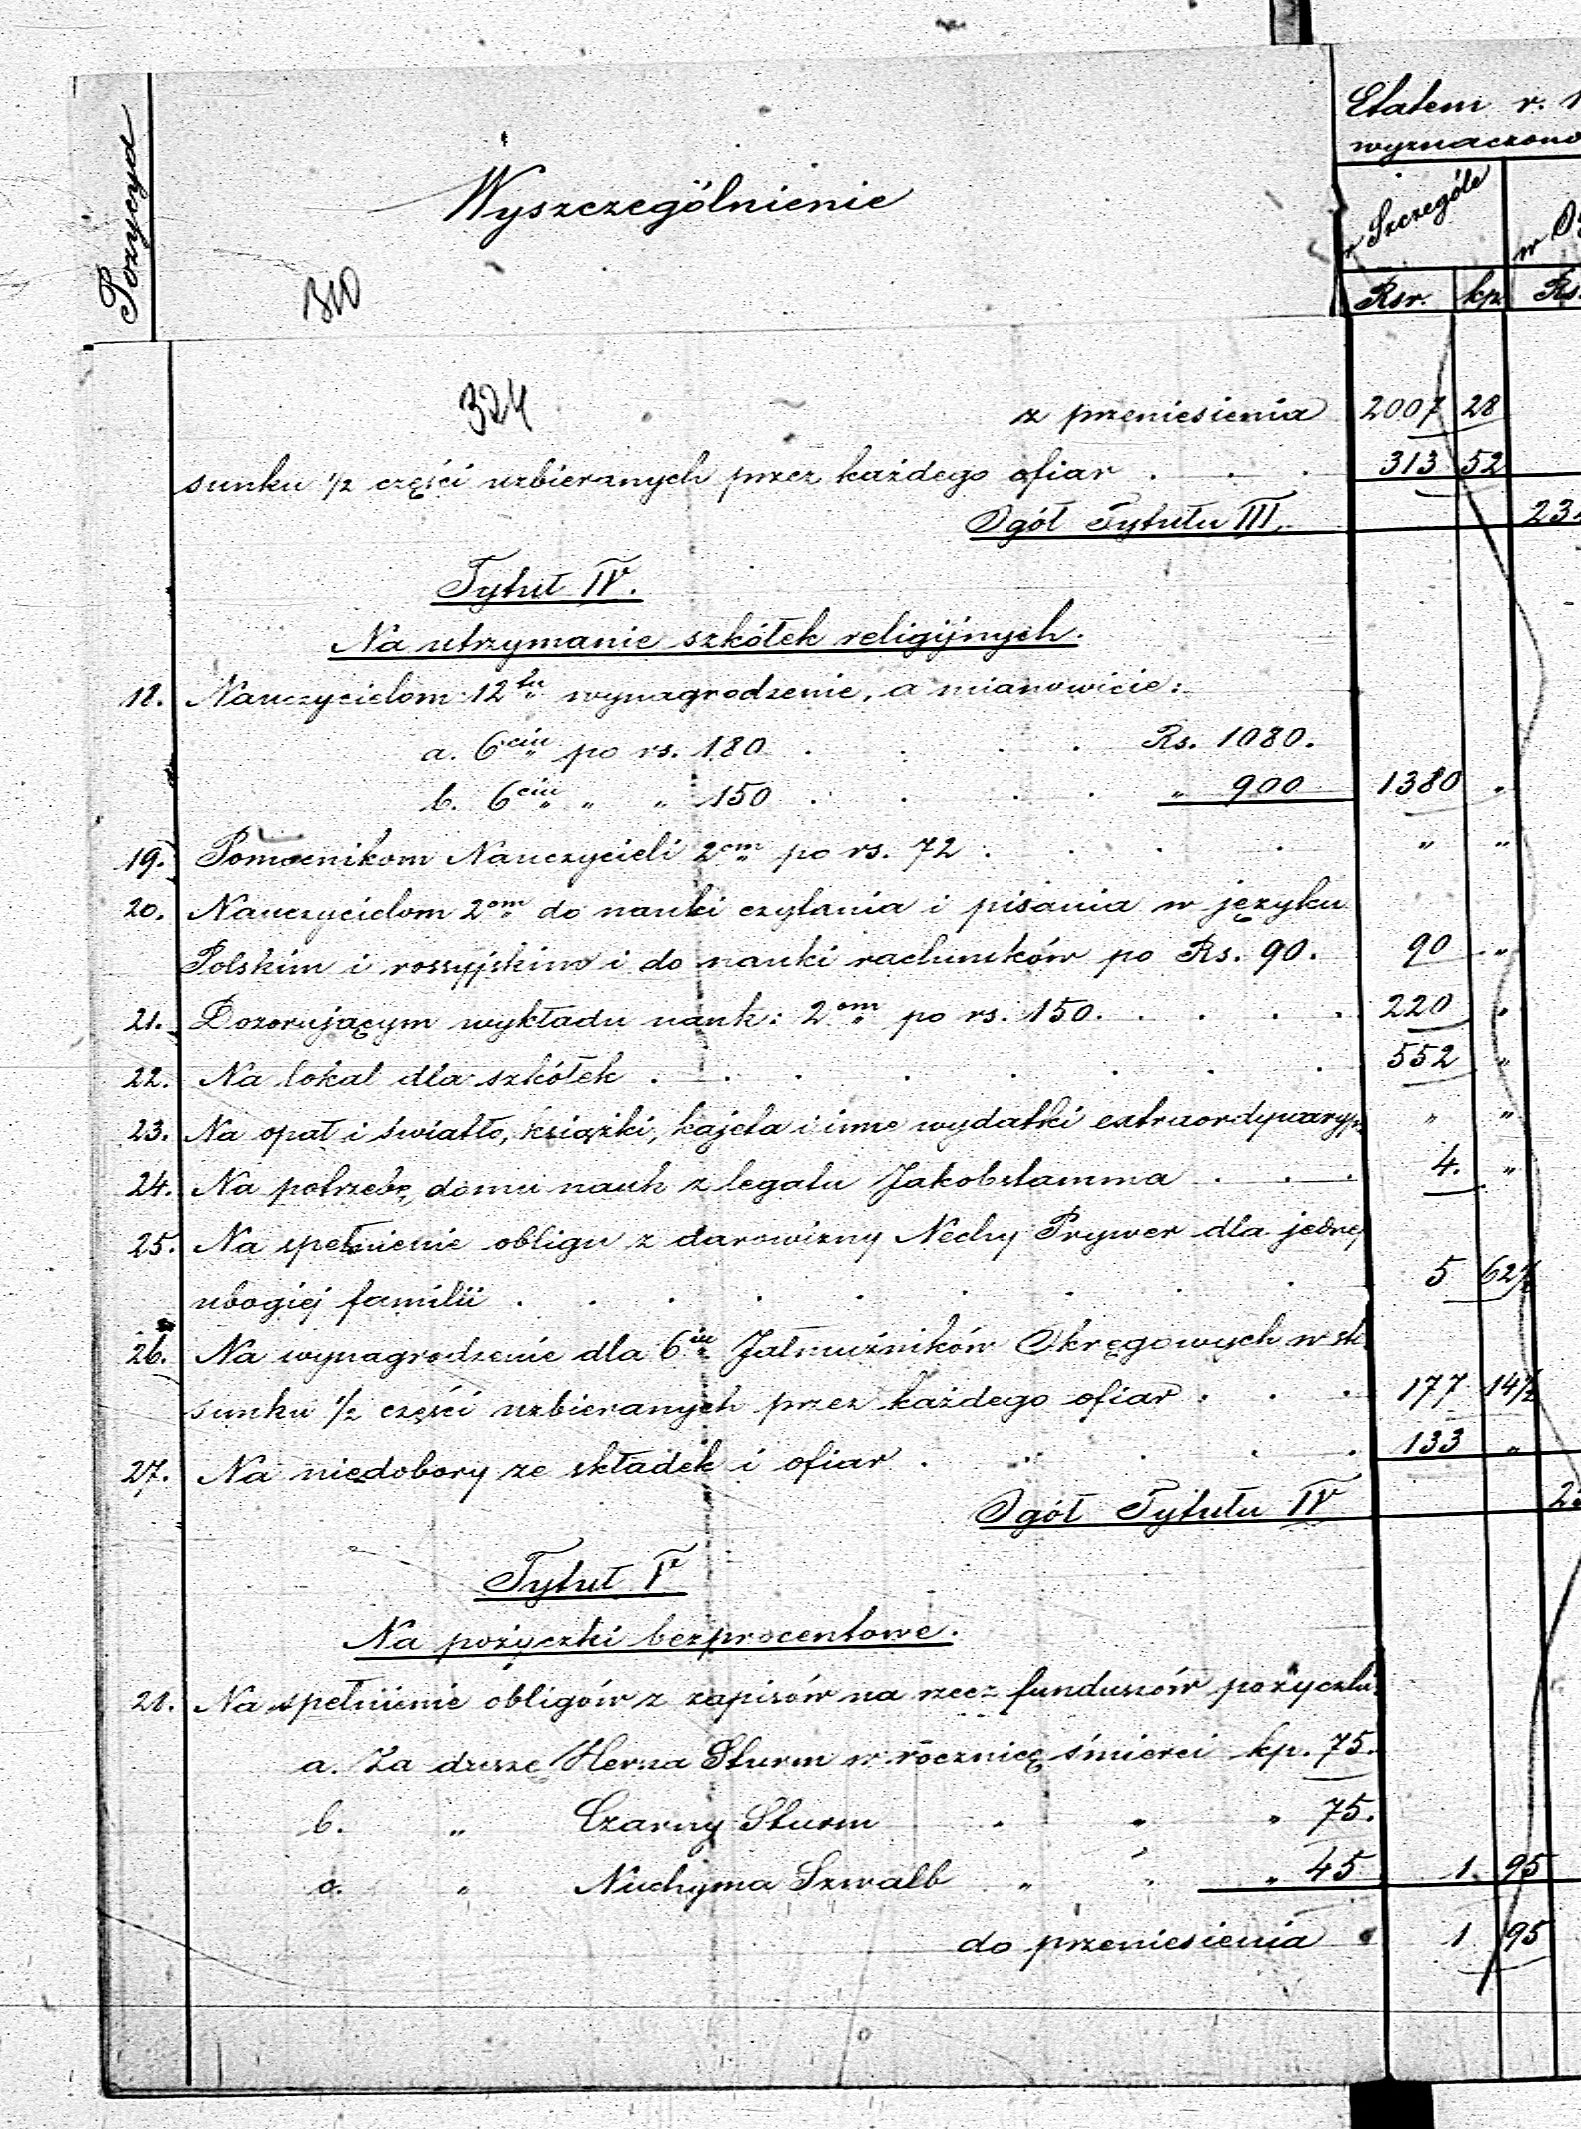 Pozycyd
Wyszczególnienie
310
324
Etatem r. 1
wyznaczono
w Szczególe
w O
Rsr. kp. Rs.
z przeniesienia 2007 28
sunku 1/2 części uzbieranych przez każdego ofiar . . . 313 52
Ogół Tytułu III. 23
Tytuł IV.
Na utrzymanie szkółek religijnych.
18. Nauczycielom 12tu wynagrodzenie, a mianowicie:
a. 6ciu po rs. 180 . . . . Rs. 1080.
b. 6ciu " " 150 . . . . " 900 1380 "
19. Pomocnikom Nauczycieli 2om po rs. 72 . . . . " "
20. Nauczycielom 2om do nauki czytania i pisania w języku
Polskim i rossyjskim i do nauki rachunków po Rs. 90. 90 "
21. Dozorującym wykładu nauk: 2om po rs. 150. . . . . 220 "
22. Na lokal dla szkółek . . . . . . . 552 "
23. Na opał i światło, książki, kajeta i inne wydatki extraordynaryjn " "
24. Na potrzebę domu nauk z legatu Jakobstamma . . . 4. "
25. Na spełnienie obligu z darowizny Nechy Prywer dla jednej
ubogiej familii . . . . . . . . 5 62 1/2
26. Na wynagrodzenie dla 6iu Jałmużników Okręgowych w sto
sunku 1/2 części uzbieranych przez każdego ofiar . . . 177 14 1/2
27. Na niedobory ze składek i ofiar . . . . . 133 "
Ogół Tytułu IV 2
Tytuł V
Na pożyczki bezprocentowe.
28. Na spełnienie obligów z zapisów na rzecz funduszów pożyczk
a. Za duszę Hersza Sturm w rocznicę śmierci kp. 75.
b. " Czarny Sturm " " " 75.
c. " Nuchyma Szwalb " " " 45 1. 95
do przeniesienia 1 95